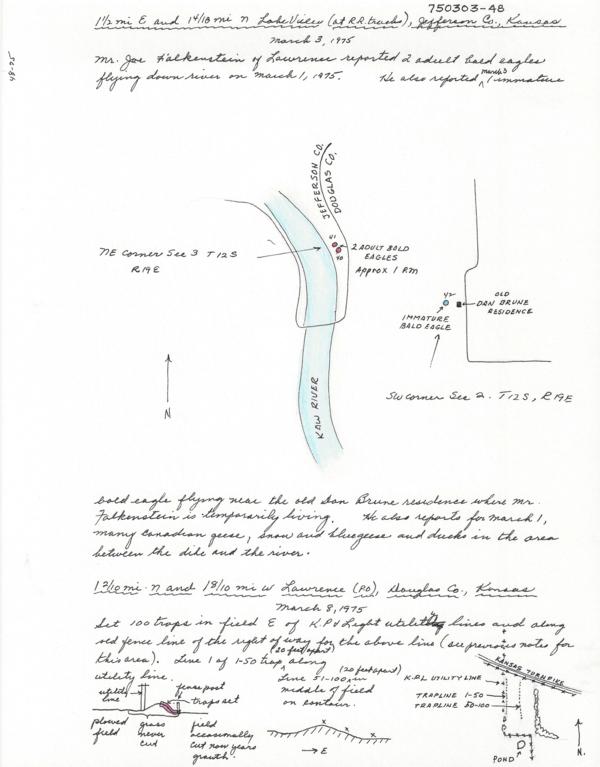 750303-48
48-75
1 1/2 mi E and 1 4/10 mi N LakeView (at R.R. tracks), Jefferson Co., Kansas
March 3, 1975
Mr. Joe Falkenstein of Lawrence reported 2 adult bald eagles
flying down river on March 1, 1975. He also reported March 3 1 immature
JEFFERSON CO.
DOUGLAS CO.
NE Corner Sec 3 T12S
R19E
41
40
2 ADULT BALD
EAGLES
Approx 1 PM
42
IMMATURE
BALD EAGLE
OLD
DAN BRUNE
RESIDENCE
SW corner Sec 2. T12S, R19E
N
KAW RIVER
bald eagle flying near the old Dan Brune residence where Mr.
Falkenstein is temporarily living. He also reports for March 1,
many Canadian geese, snow and blue geese and ducks in the area
between the dike and the river.
mi. N and 1 8/10 mi W Lawrence (PO), Douglas Co., Kansas
March 8, 1975
Set 100 traps in field E of K.P & Light utility lines and along
old fence line of the right of way for the above line (see previous notes for
this area). Line 1 of 1-50 trap (20 feet apart) along
utility line.
Line 51-100 (20 feet apart) in
middle of field
on contour.
utility
line
fence post
traps set
plowed
field
grass
never
cut
field
occasionally
cut now years
growth.
x
x
x
→ E
KANSAS TURNPIKE
K.P.L UTILITY LINE
TRAPLINE 1-50
TRAPLINE 50-100
POND
N.